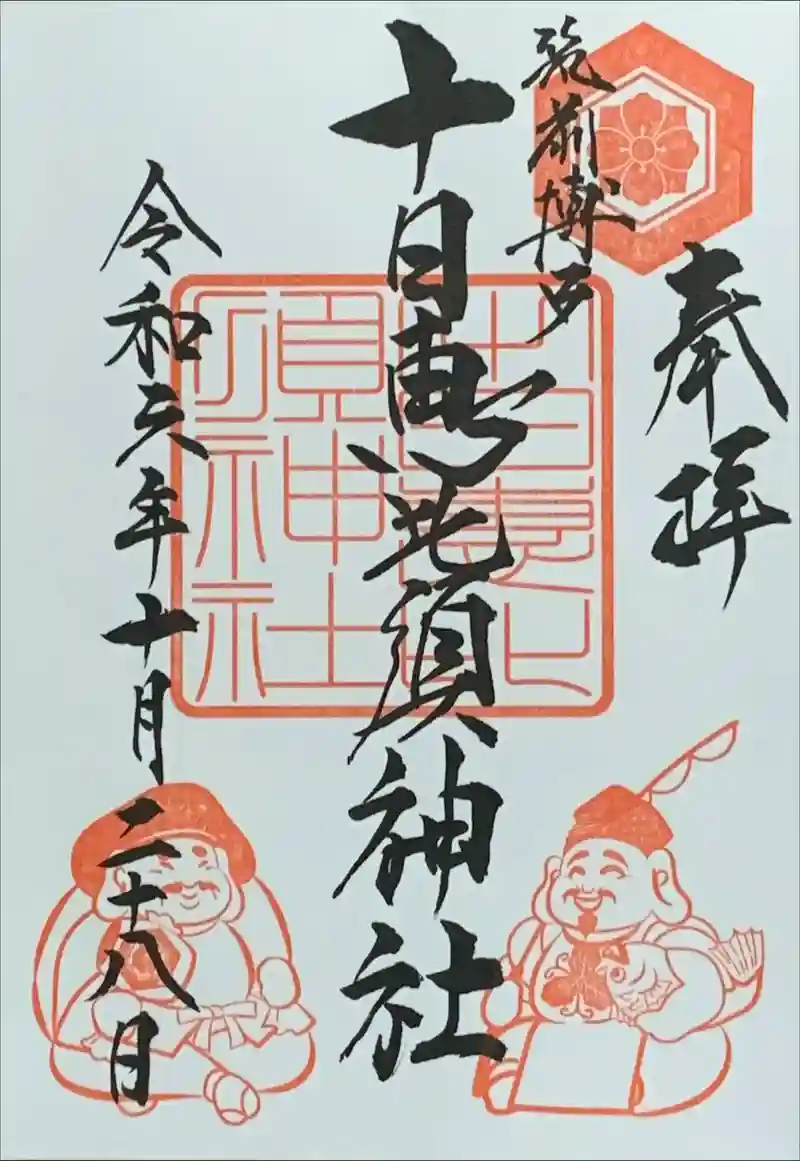 奉拝
筑前博多
十日恵比須神社
令和六年十月二十八日
十日恵比
須神社